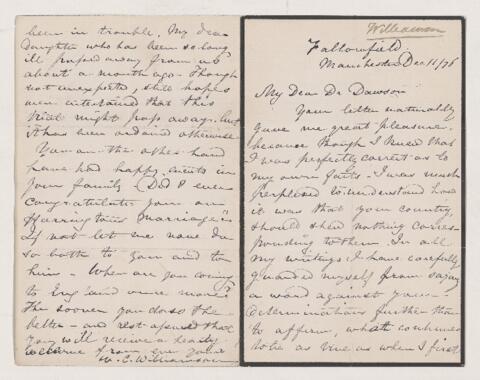 Williamson
Fallowfield
Manchester Dec 11/76
My Dear Dr Dawson
Your letter naturally
gave me great pleasure,
because though I knew that
I was perfectly correct as to
my own facts - I was much
perplexed to understand how
it was that your country,
should shew nothing corres-
ponding to them. In all
my writings I have carefully
guarded myself from saying
a word against your
determinations further than
to affirm, what continues
to be as true as when I first
been in trouble. My dear
Daughter who has been so long
ill passed away from us
about a month ago. Though
not unexpected, still hopes
were entertained that this
trial might pass away. but
it has been ordained otherwise
You on the other hand
have had happy events in
your family. Did I ever
congratulate you on
Harrington's marriage
If not let me now do
so both to you and to
him - When are you coming
to England once more?
The sooner you do so the
better - and rest assured that
you will receive a hearty
welcome from ever yours
W. C. Williamson